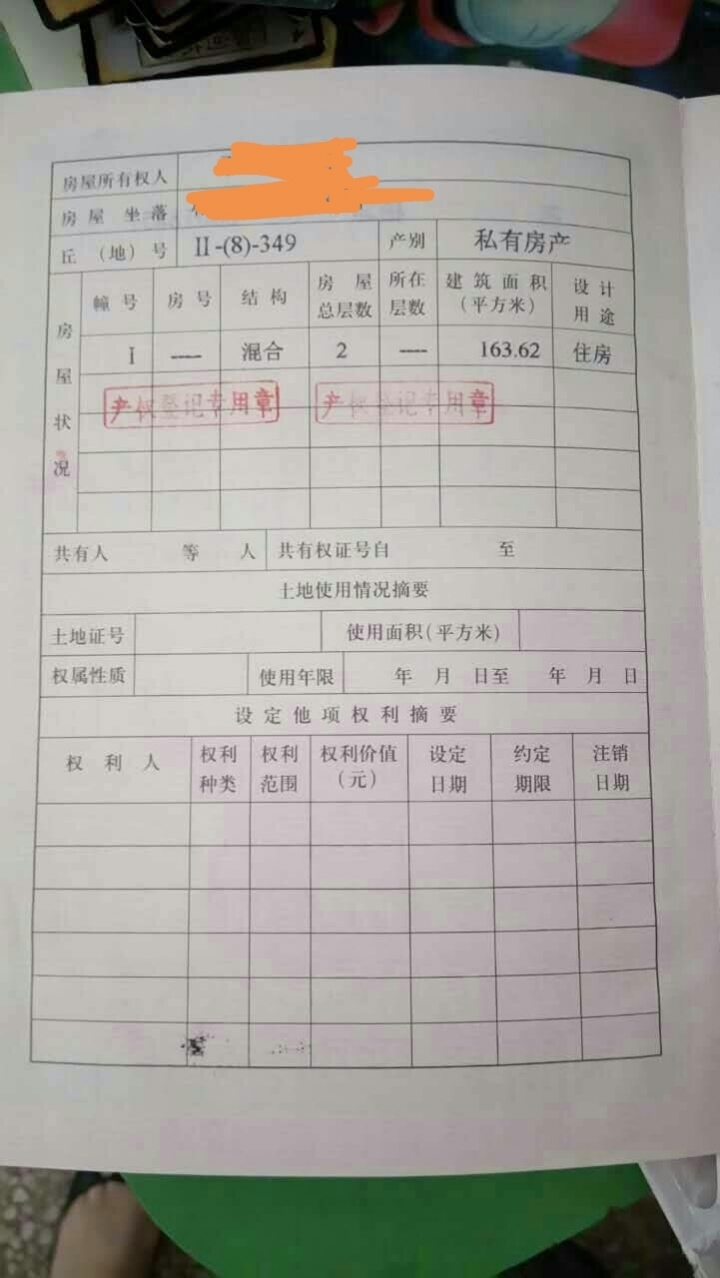 房屋所有权人
房屋坐落
丘（地）号 II-(8)-349 产别 私有房产
房屋状况
幢号 房号 结构 房屋总层数 所在层数 建筑面积（平方米） 设计用途
I ---- 混合 2 ---- 163.62 住房
产权登记专用章 产权登记专用章
共有人 等 人 共有权证号自 至
土地使用情况摘要
土地证号 使用面积(平方米)
权属性质 使用年限 年 月 日至 年 月 日
设定他项权利摘要
权利人 权利种类 权利范围 权利价值（元） 设定日期 约定期限 注销日期